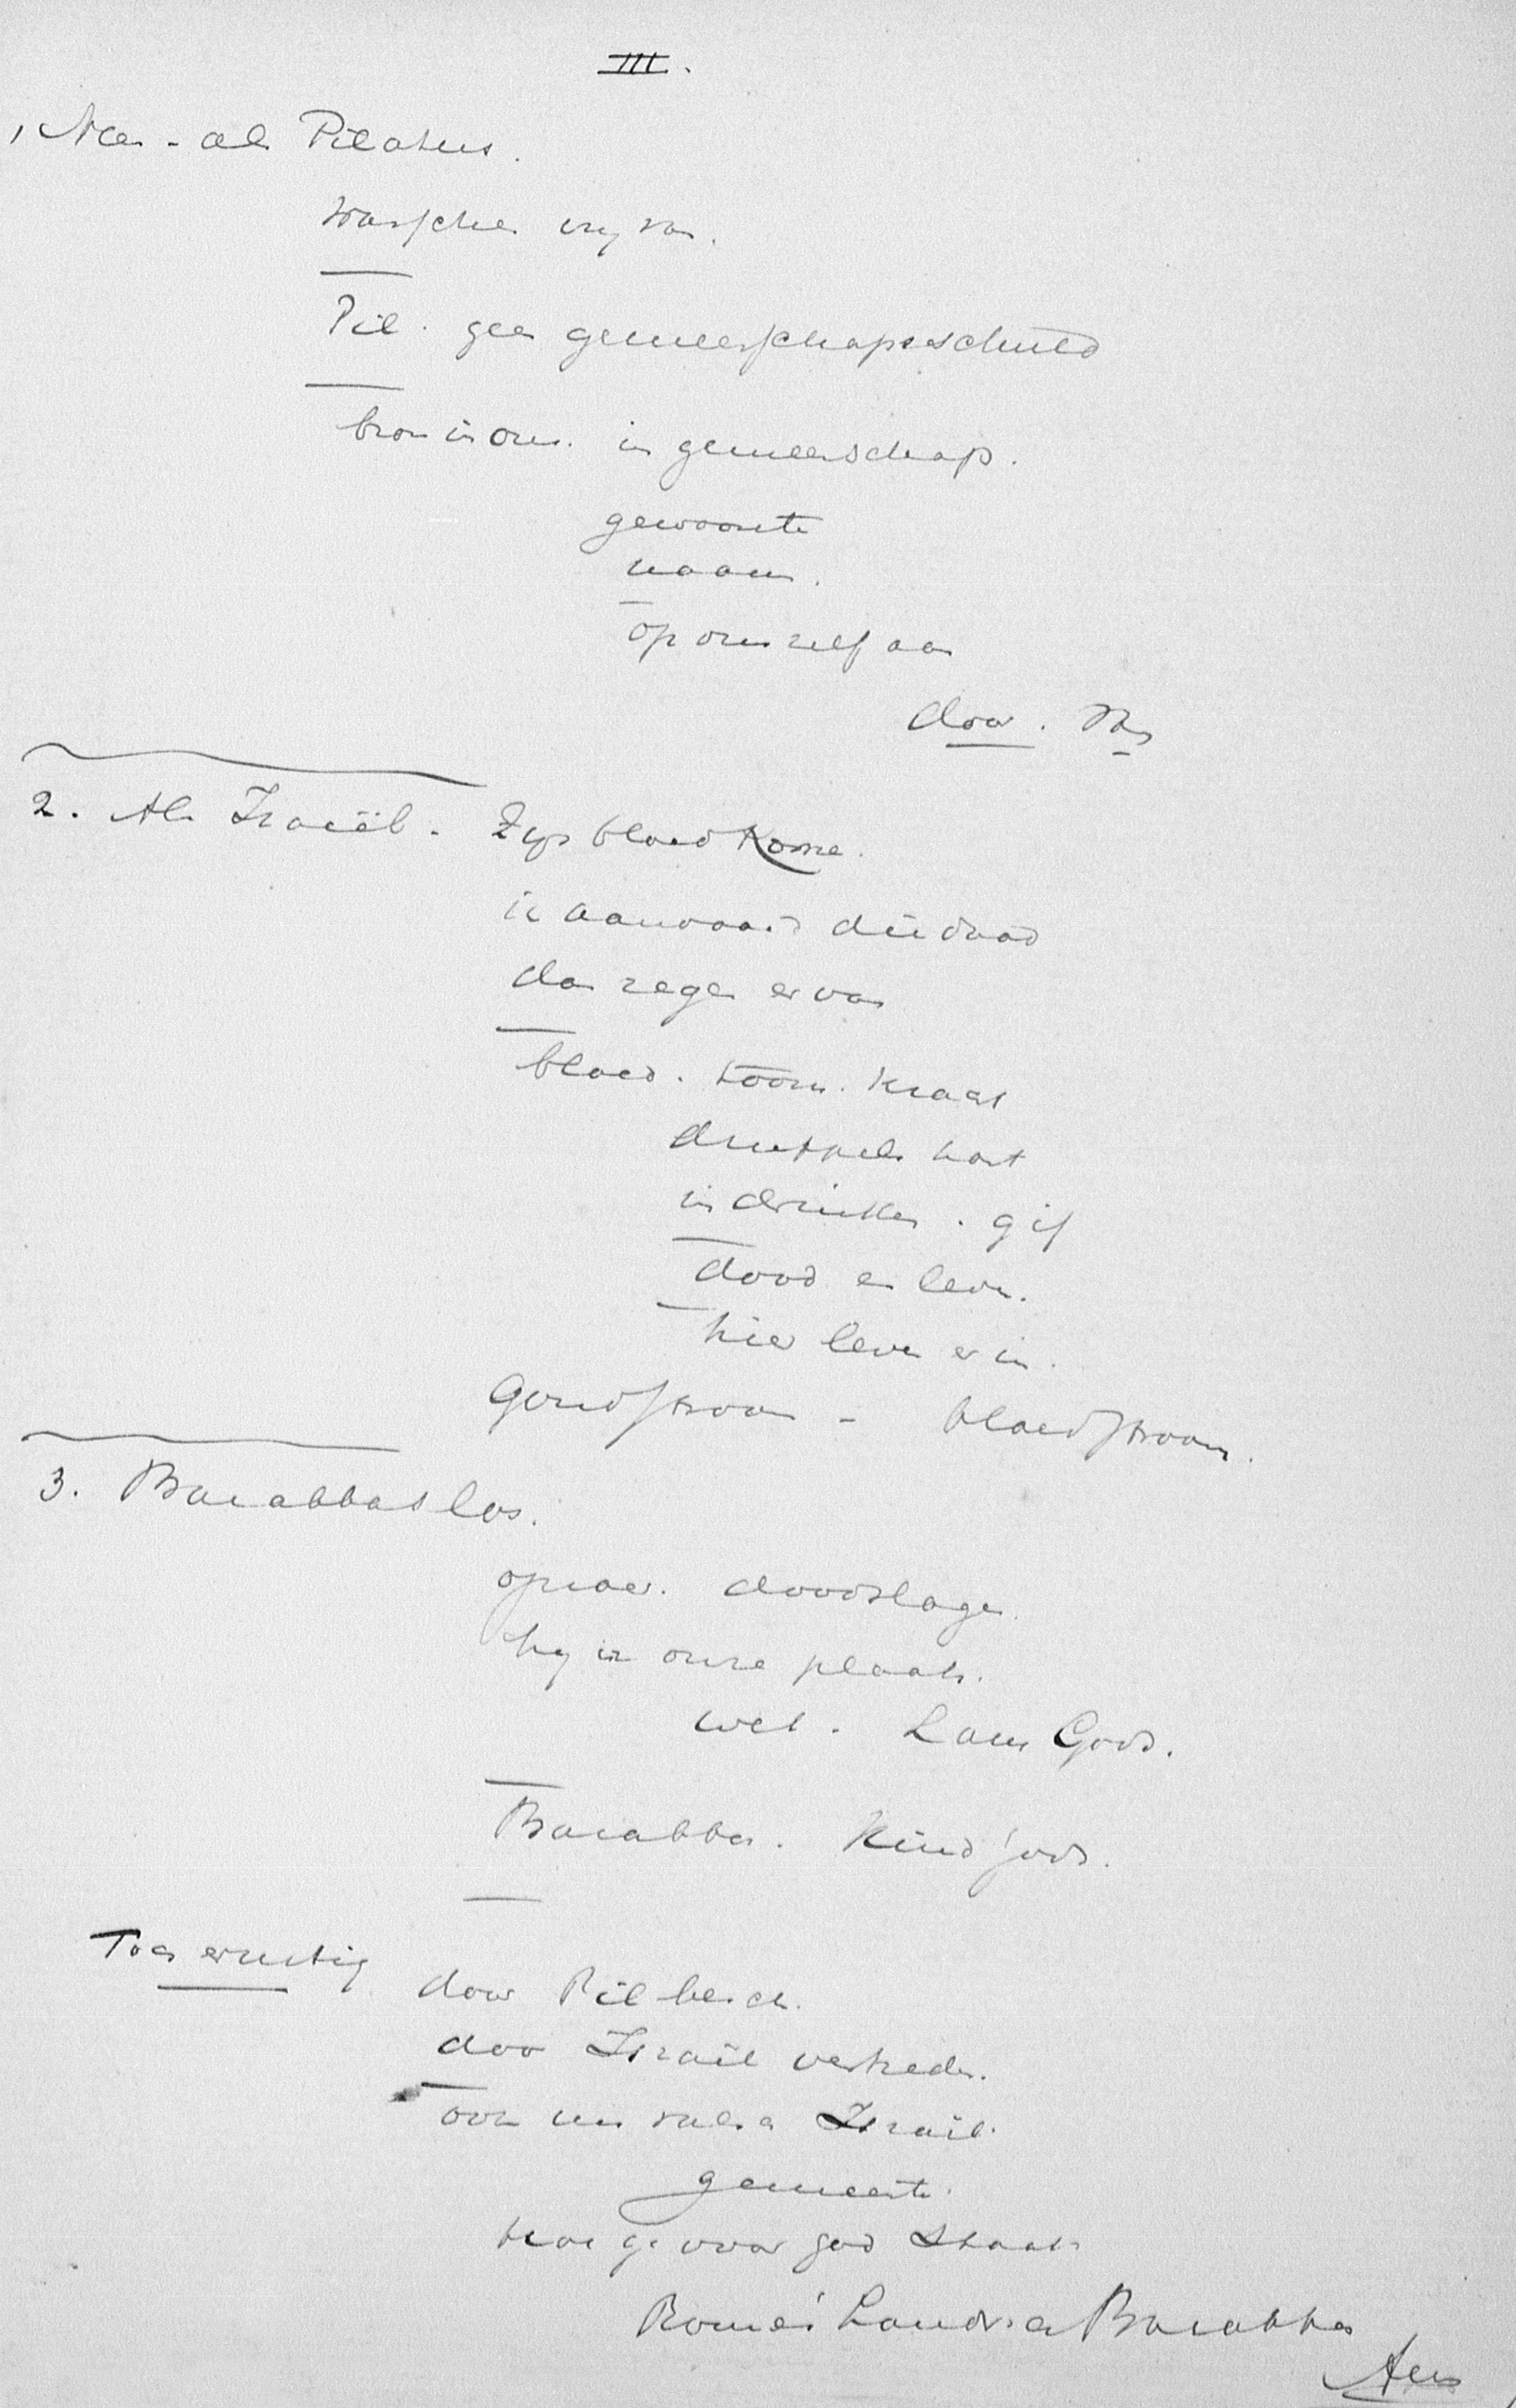 III.
1 Nee - als Pilatus.
wasschen vrij van.
Pil. geen gemeenschapsschuld
bron in ons. in gemeenschap.
gewoonte
naam.
op ons zelf aan
door.
2. Als Israël. Zijn bloed kome.
ik aanvaard die daad
dan zegen ervan
bloed. toorn. wraak
druppels hart
indrinken. gif
dood en leven.
hier leven er in.
Gods stroom - bloedstroom.
3. Barabbas los.
oproer. doodslager.
hij in onze plaats.
wet. Lam Gods.
Barabbas. Kind Gods.
Toen ernstig
door Pil besch.
door Israël vertreden.
ook een Israël.
gemeente.
hoe ge voor God staat.
Barabbas
Amen